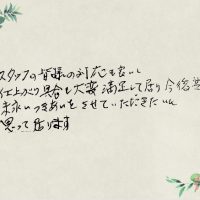 スタッフの皆様の対応も良いし
仕上がり具合も大変満足して居り今后共
末永いつきあいをさせていただきたいと
思って居ります